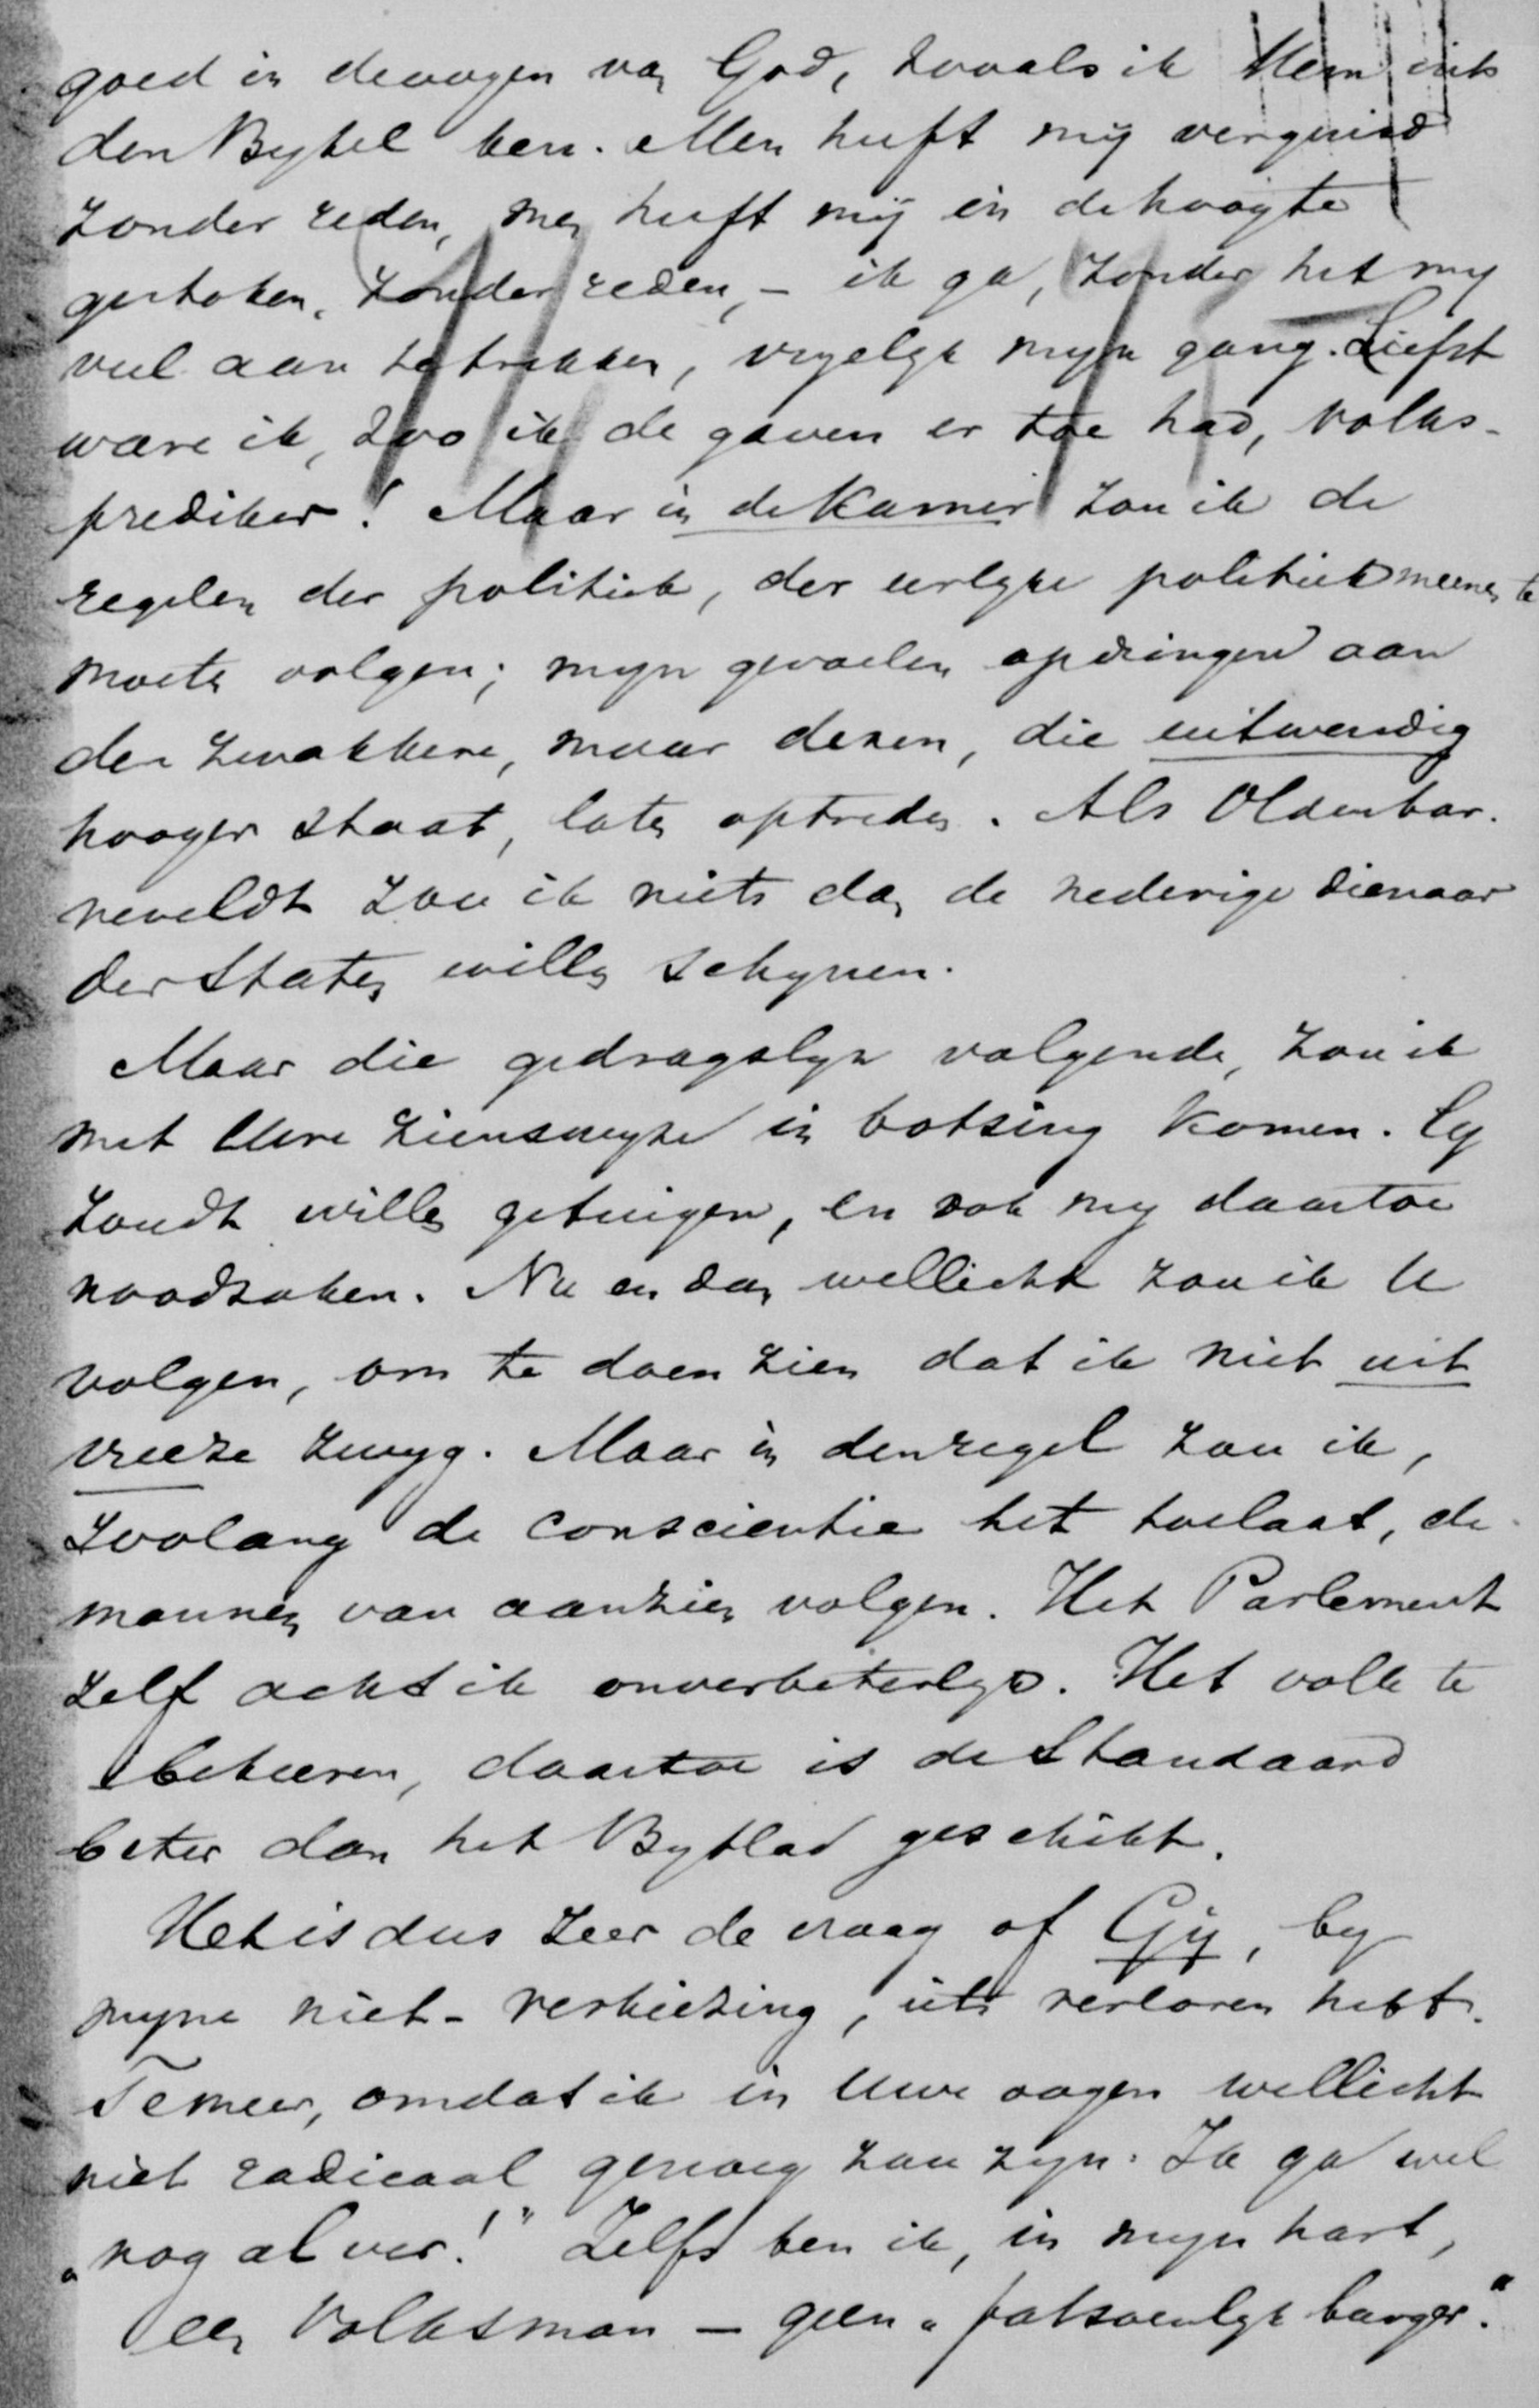 goed in de oogen van God, zooals ik Hem uit
den Bybel ken. Men heeft mij verguisd
zonder reden, men heeft mij in de hoogte
gestoken, zonder reden, - ik ga, zonder het my
veel aan te trekken, vryelyk myn gang. Liefst
ware ik, zoo ik de gaven er toe had, volks-
prediker! Maar in de Kamer zou ik de
regelen der politiek, der eerlyke politiek meenen te
moeten volgen; myn gevoelen opdringen aan
den zwakkere, maar dezen, die uitwendig
hooger staat, laten optreden. Als Oldenbar-
neveldt zou ik niets dan de nederige dienaar
der Staten willen schynen.
Maar die gedragslyn volgende, zou ik
met Uwe zienswyze in botsing komen. Gy
zoudt willen getuigen, en ook my daartoe
noodzaken. Nu en dan wellicht zou ik U
volgen, om te doen zien dat ik niet uit
vreeze zwyg. Maar in den regel zou ik,
zoolang de conscientie het toelaat, de
mannen van aanzien volgen. Het Parlement
zelf acht ik onverbeterlyk. Het volk te
bekeeren, daartoe is de Standaard
beter dan het Byblad geschikt.
Het is dus zeer de vraag of Gij, by
myne niet-verkiezing, iets verloren hebt.
Te meer, omdat ik in Uwe oogen wellicht
niet radicaal genoeg zou zyn. Ik ga wel
„nog al ver!" Zelfs ben ik, in myn hart,
een Volksman - geen „fatsoenlyk burger."